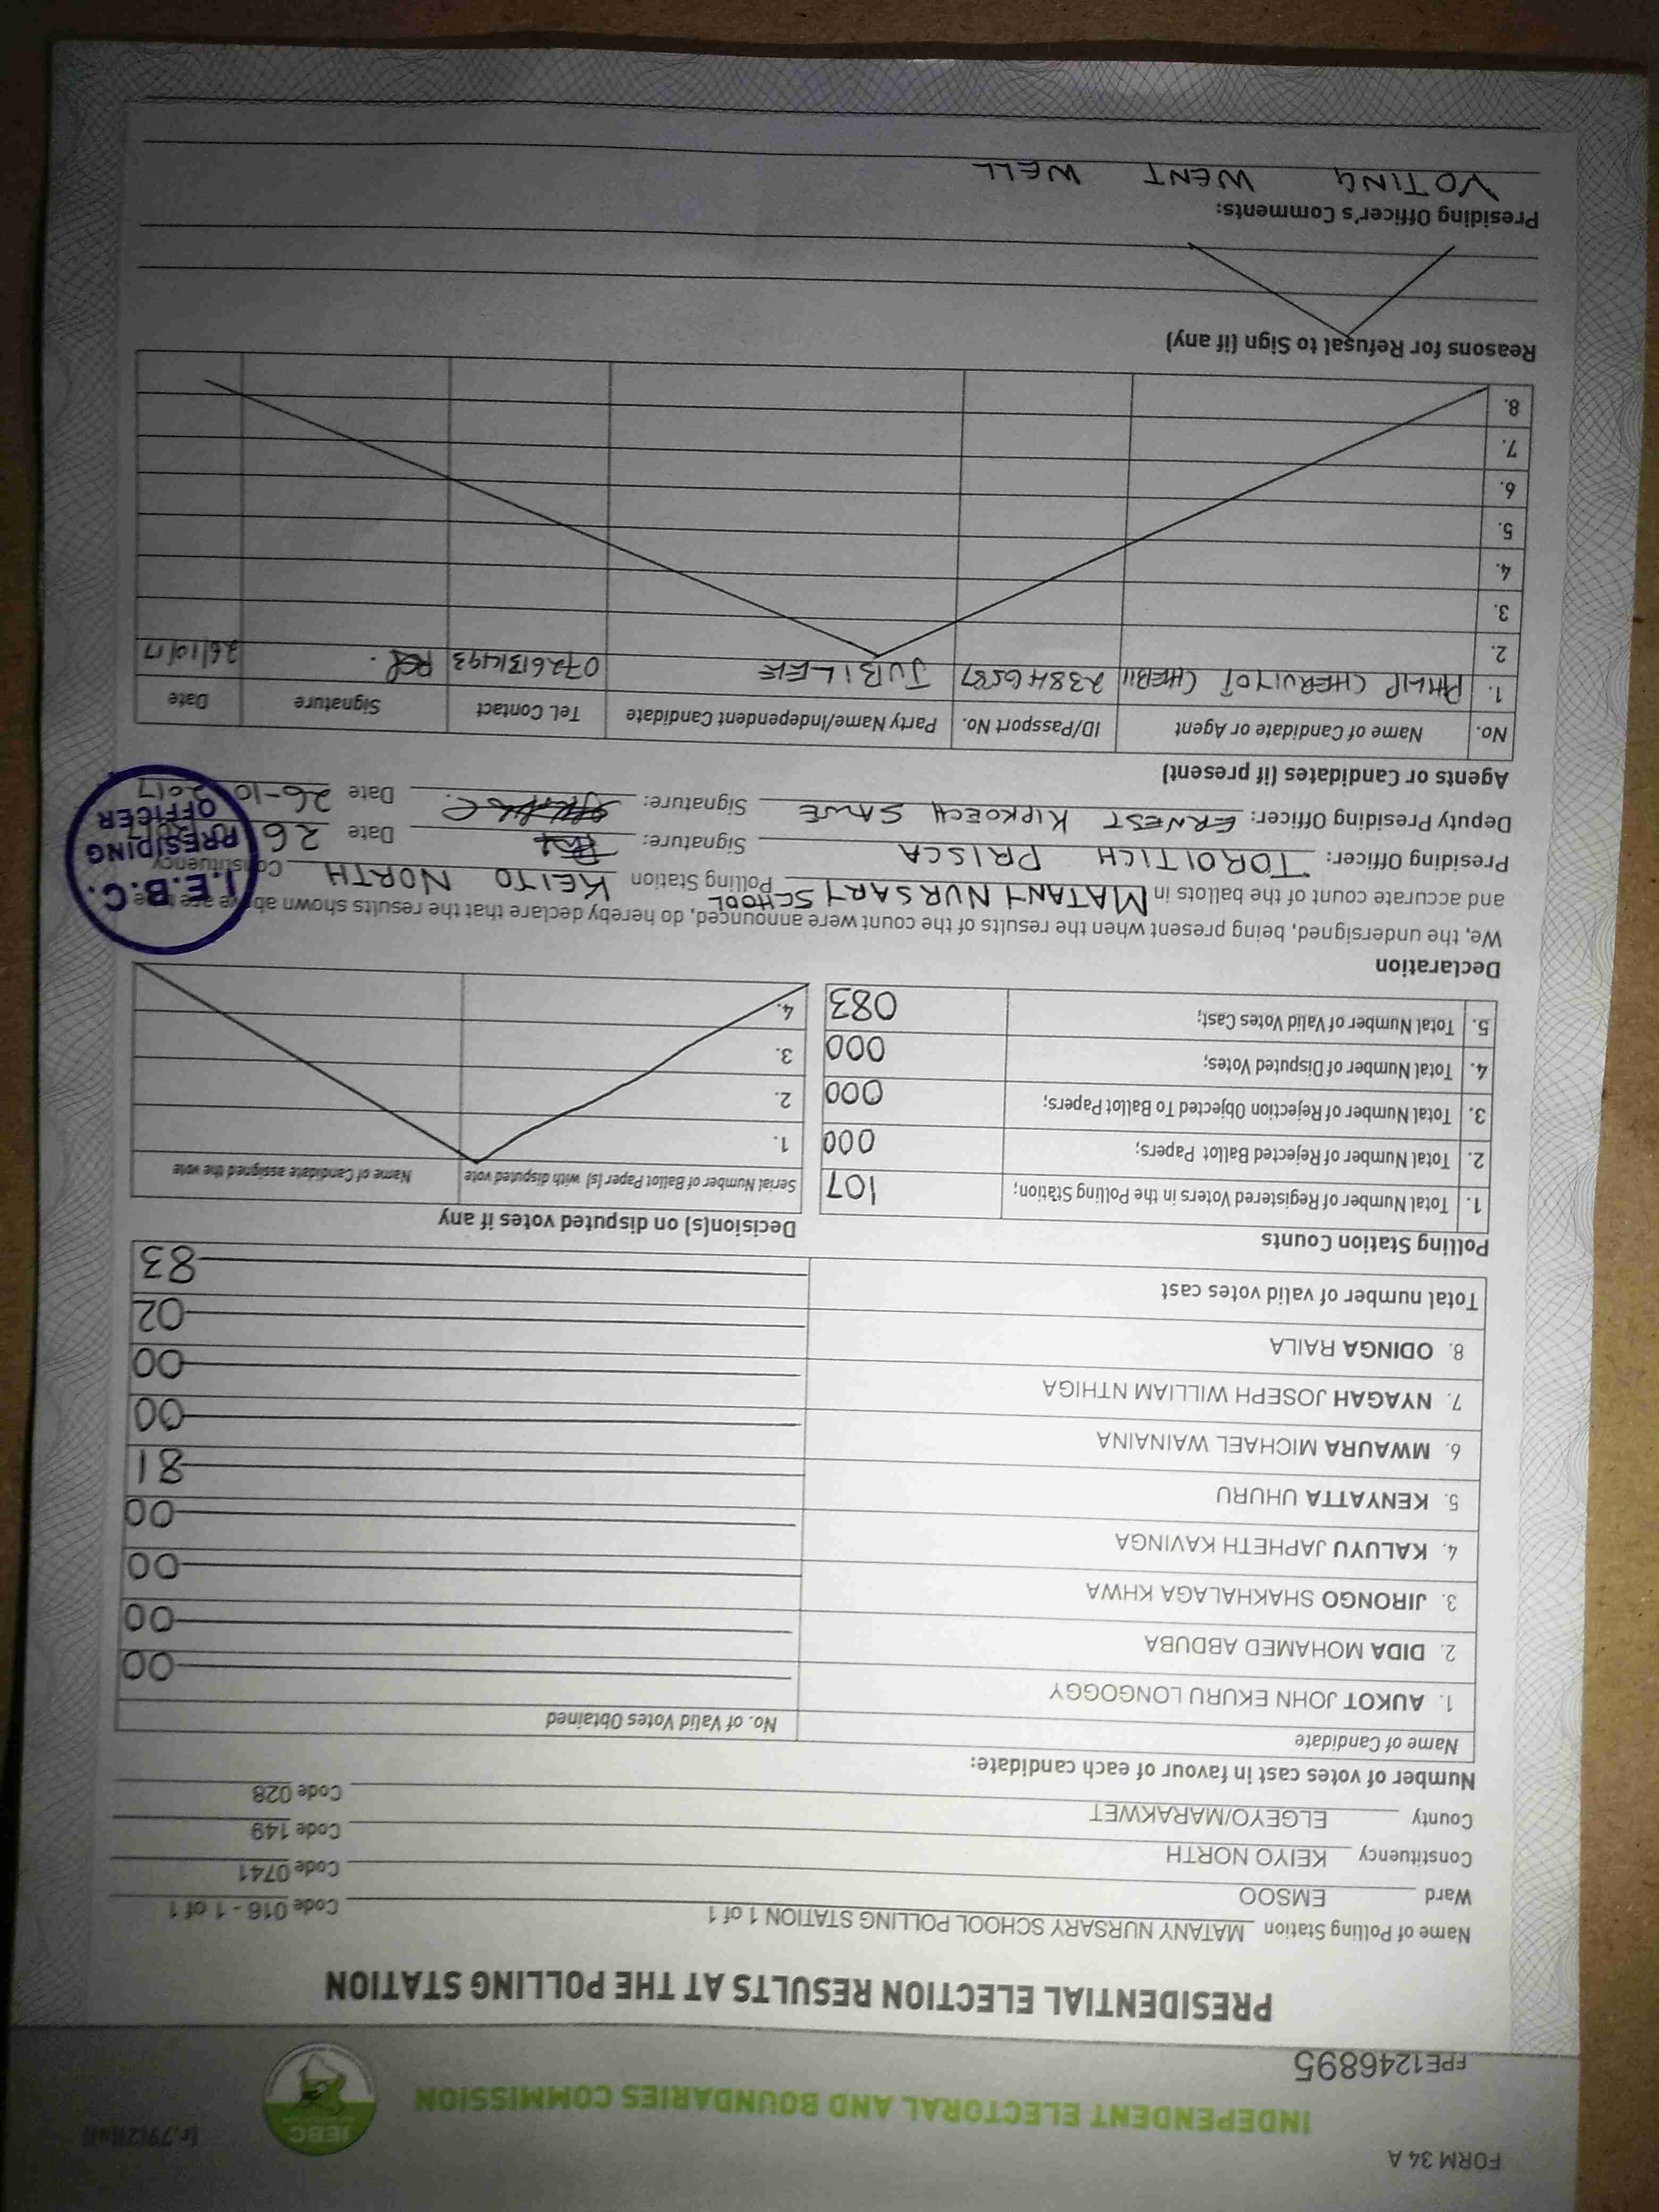 FORM 34 A
(r.79(2)(a))
IEBC
INDEPENDENT ELECTORAL AND BOUNDARIES COMMISSION
FPE1246895
PRESIDENTIAL ELECTION RESULTS AT THE POLLING STATION
Name of Polling Station MATANY NURSARY SCHOOL POLLING STATION 1 of 1 Code 016 - 1 of 1
Ward EMSOO Code 0741
Constituency KEIYO NORTH Code 149
County ELGEYO/MARAKWET Code 028
Number of votes cast in favour of each candidate:
Name of Candidate No. of Valid Votes Obtained
1. AUKOT JOHN EKURU LONGOGGY 00
2. DIDA MOHAMED ABDUBA 00
3. JIRONGO SHAKHALAGA KHWA 00
4. KALUYU JAPHETH KAVINGA 00
5. KENYATTA UHURU 81
6. MWAURA MICHAEL WAINAINA 00
7. NYAGAH JOSEPH WILLIAM NTHIGA 00
8. ODINGA RAILA 02
Total number of valid votes cast 83
Polling Station Counts
1. Total Number of Registered Voters in the Polling Station; 107
2. Total Number of Rejected Ballot Papers; 000
3. Total Number of Rejection Objected To Ballot Papers; 000
4. Total Number of Disputed Votes; 000
5. Total Number of Valid Votes Cast; 083
Decision(s) on disputed votes if any
Serial Number of Ballot Paper (s) with disputed vote Name of Candidate assigned the vote
1.
2.
3.
4.
Declaration
We, the undersigned, being present when the results of the count were announced, do hereby declare that the results shown above are true
and accurate count of the ballots in MATANY NURSARY SCHOOL Polling Station KEIYO NORTH Constituency
Presiding Officer: TOROITICH PRISCA Signature: Date 26
Deputy Presiding Officer: ERNEST KIPKOECH SAWE Signature: Date 26-10-2017
I.E.B.C.
PRESIDING
OFFICER
Agents or Candidates (if present)
No. Name of Candidate or Agent ID/Passport No. Party Name/Independent Candidate Tel. Contact Signature Date
1. PHILIP CHERUIYOT CHEBII 23846587 JUBILEE 0726131493 26/10/17
2.
3.
4.
5.
6.
7.
8.
Reasons for Refusal to Sign (if any)
Presiding Officer's Comments:
VOTING WENT WELL